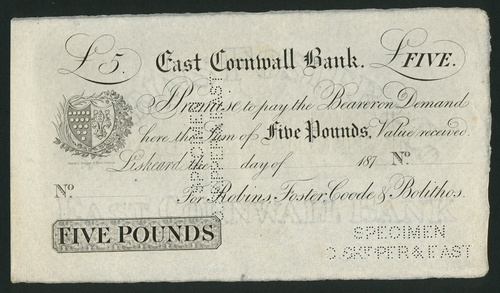 £5. East Cornwall Bank. £FIVE.
I Promise to pay the Bearer on Demand
here the Sum of Five Pounds, Value received.
Liskeard, the day of 187 No
No
For Robins, Foster, Coode & Bolithos.
FIVE POUNDS
SPECIMEN
SPECIMEN
O.SKIPPER & EAST